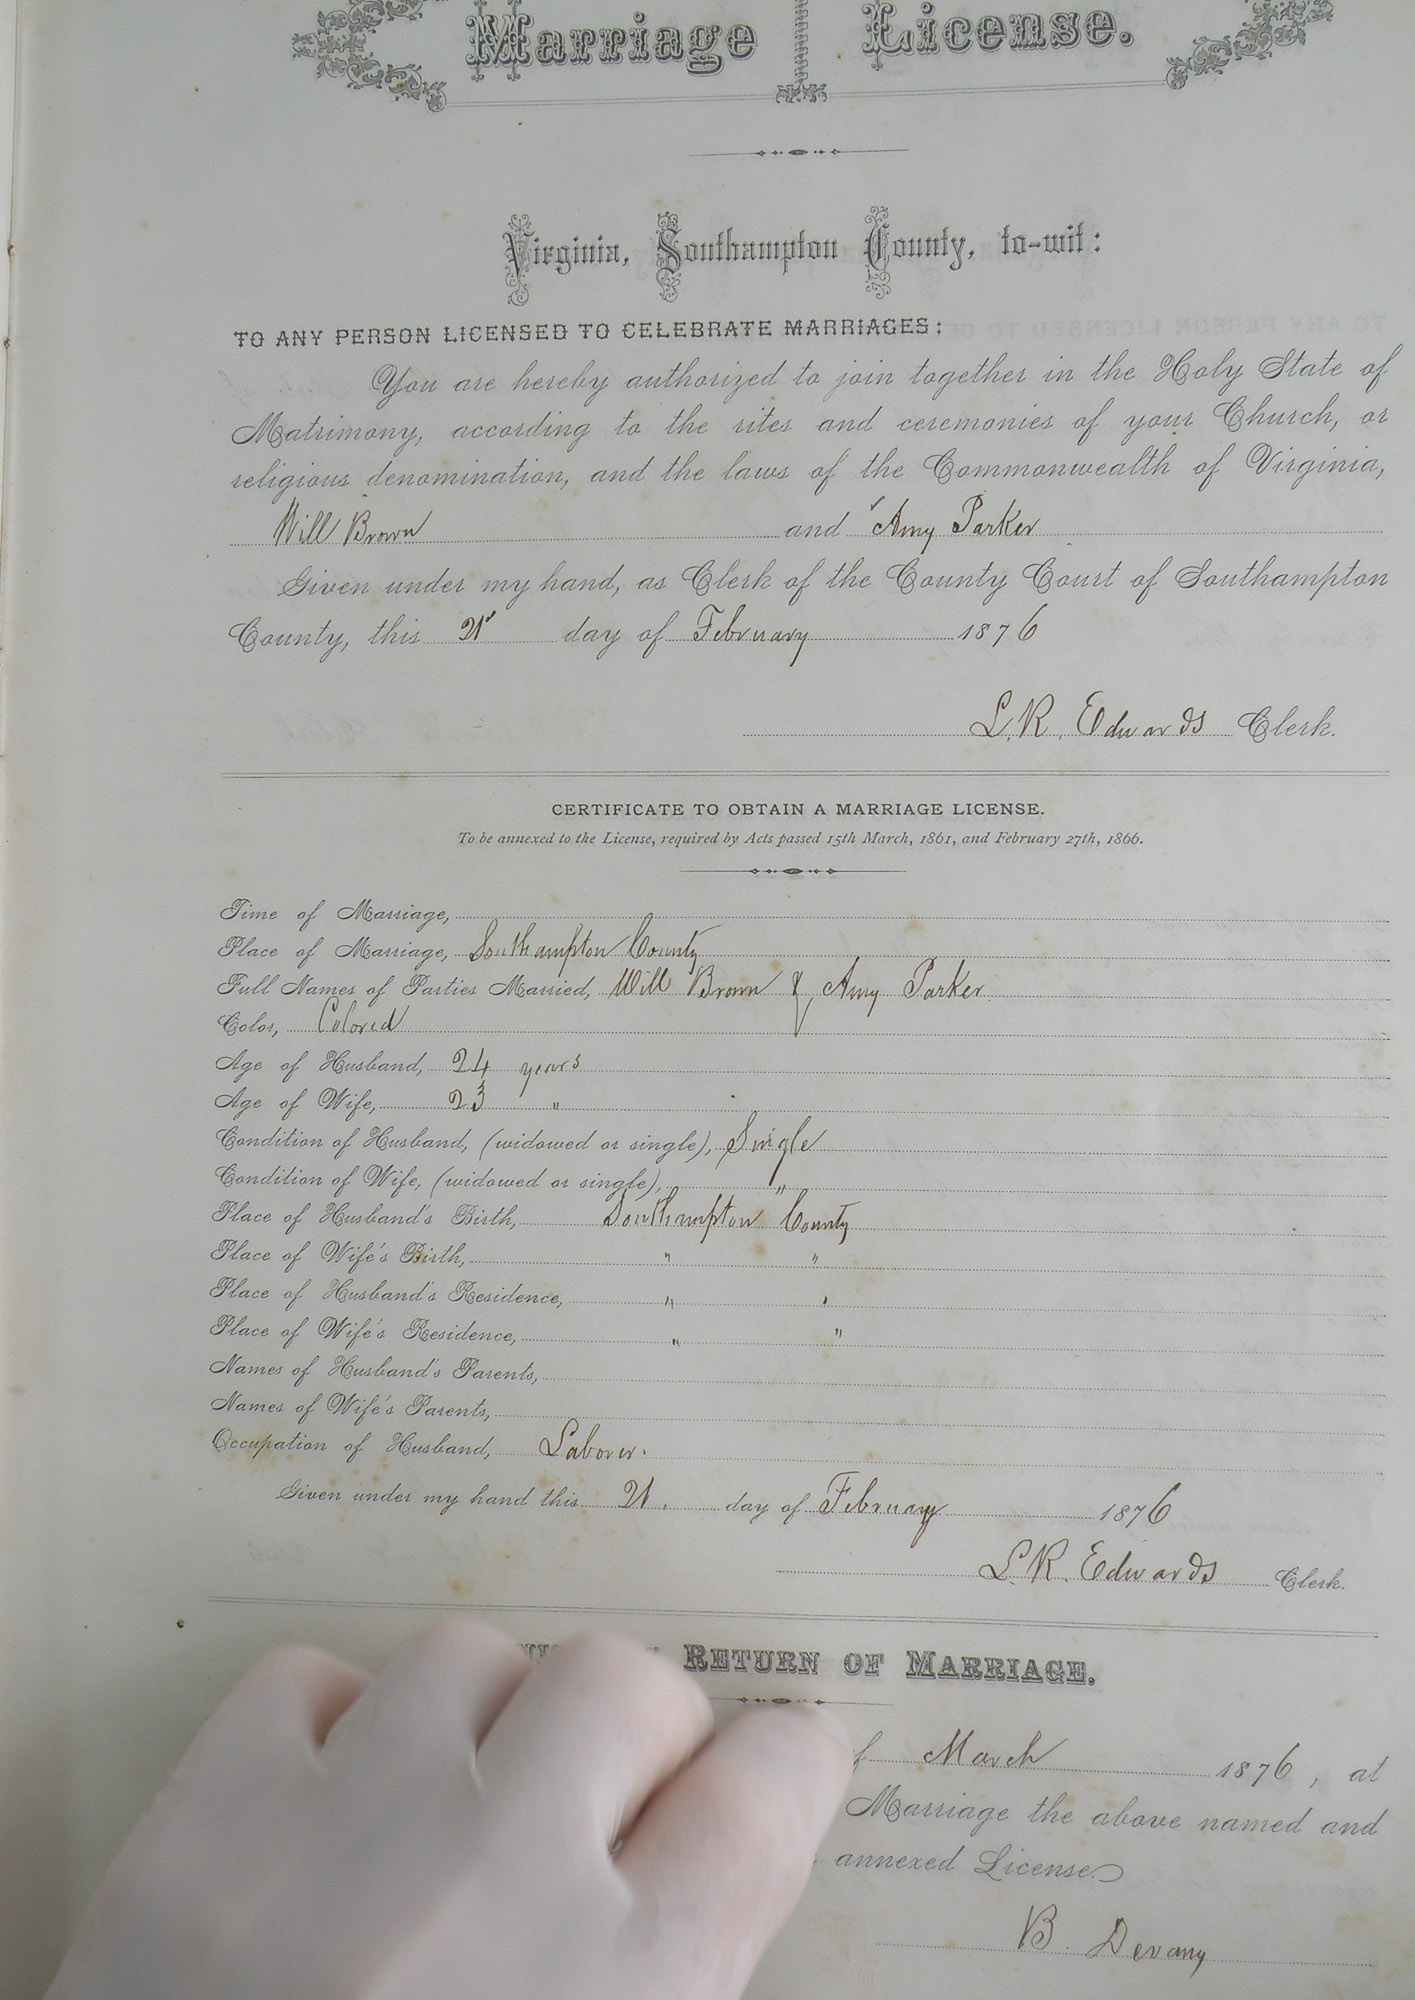 Marriage License.
Virginia, Southampton County, to-wit:
TO ANY PERSON LICENSED TO CELEBRATE MARRIAGES:
You are hereby authorized to join together in the Holy State of
Matrimony, according to the rites and ceremonies of your Church, or
religious denomination, and the laws of the Commonwealth of Virginia,
Will Brown and Amy Parker
Given under my hand, as Clerk of the County Court of Southampton
County, this 21 day of February 1876
L. R. Edwards Clerk.
CERTIFICATE TO OBTAIN A MARRIAGE LICENSE.
To be annexed to the License, required by Acts passed 15th March, 1861, and February 27th, 1866.
Time of Marriage,
Place of Marriage, Southampton County
Full Names of Parties Married, Will Brown & Amy Parker
Color, Colored
Age of Husband, 24 years
Age of Wife, 23 "
Condition of Husband, (widowed or single), Single
Condition of Wife, (widowed or single), "
Place of Husband's Birth, Southampton County
Place of Wife's Birth, " "
Place of Husband's Residence, " "
Place of Wife's Residence, " "
Names of Husband's Parents,
Names of Wife's Parents,
Occupation of Husband, Laborer.
Given under my hand this 21. day of February 1876
L. R. Edwards Clerk.
RETURN OF MARRIAGE.
of March 1876, at
Marriage the above named and
annexed License.
B. Devany